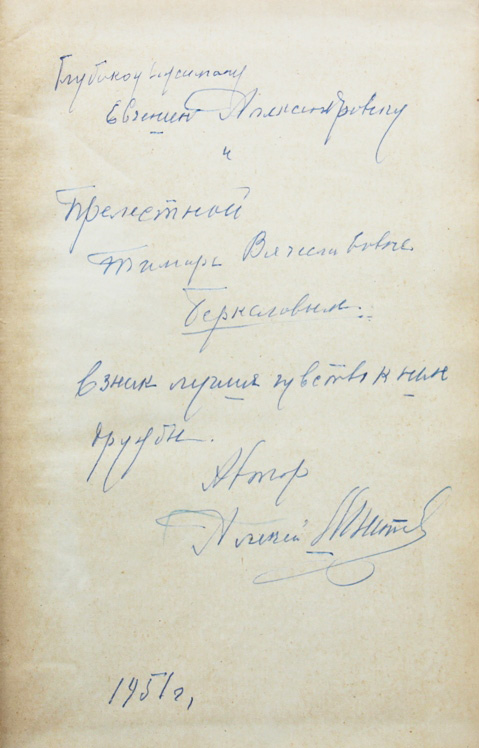 Глубокоуважаемому
Евгению Александровичу
и
Прелестной
Тамаре Вячеславовне
Беркаловым.
В знак лучших чувств к ним
дружбы.
Автор
Алексей
1951 г,